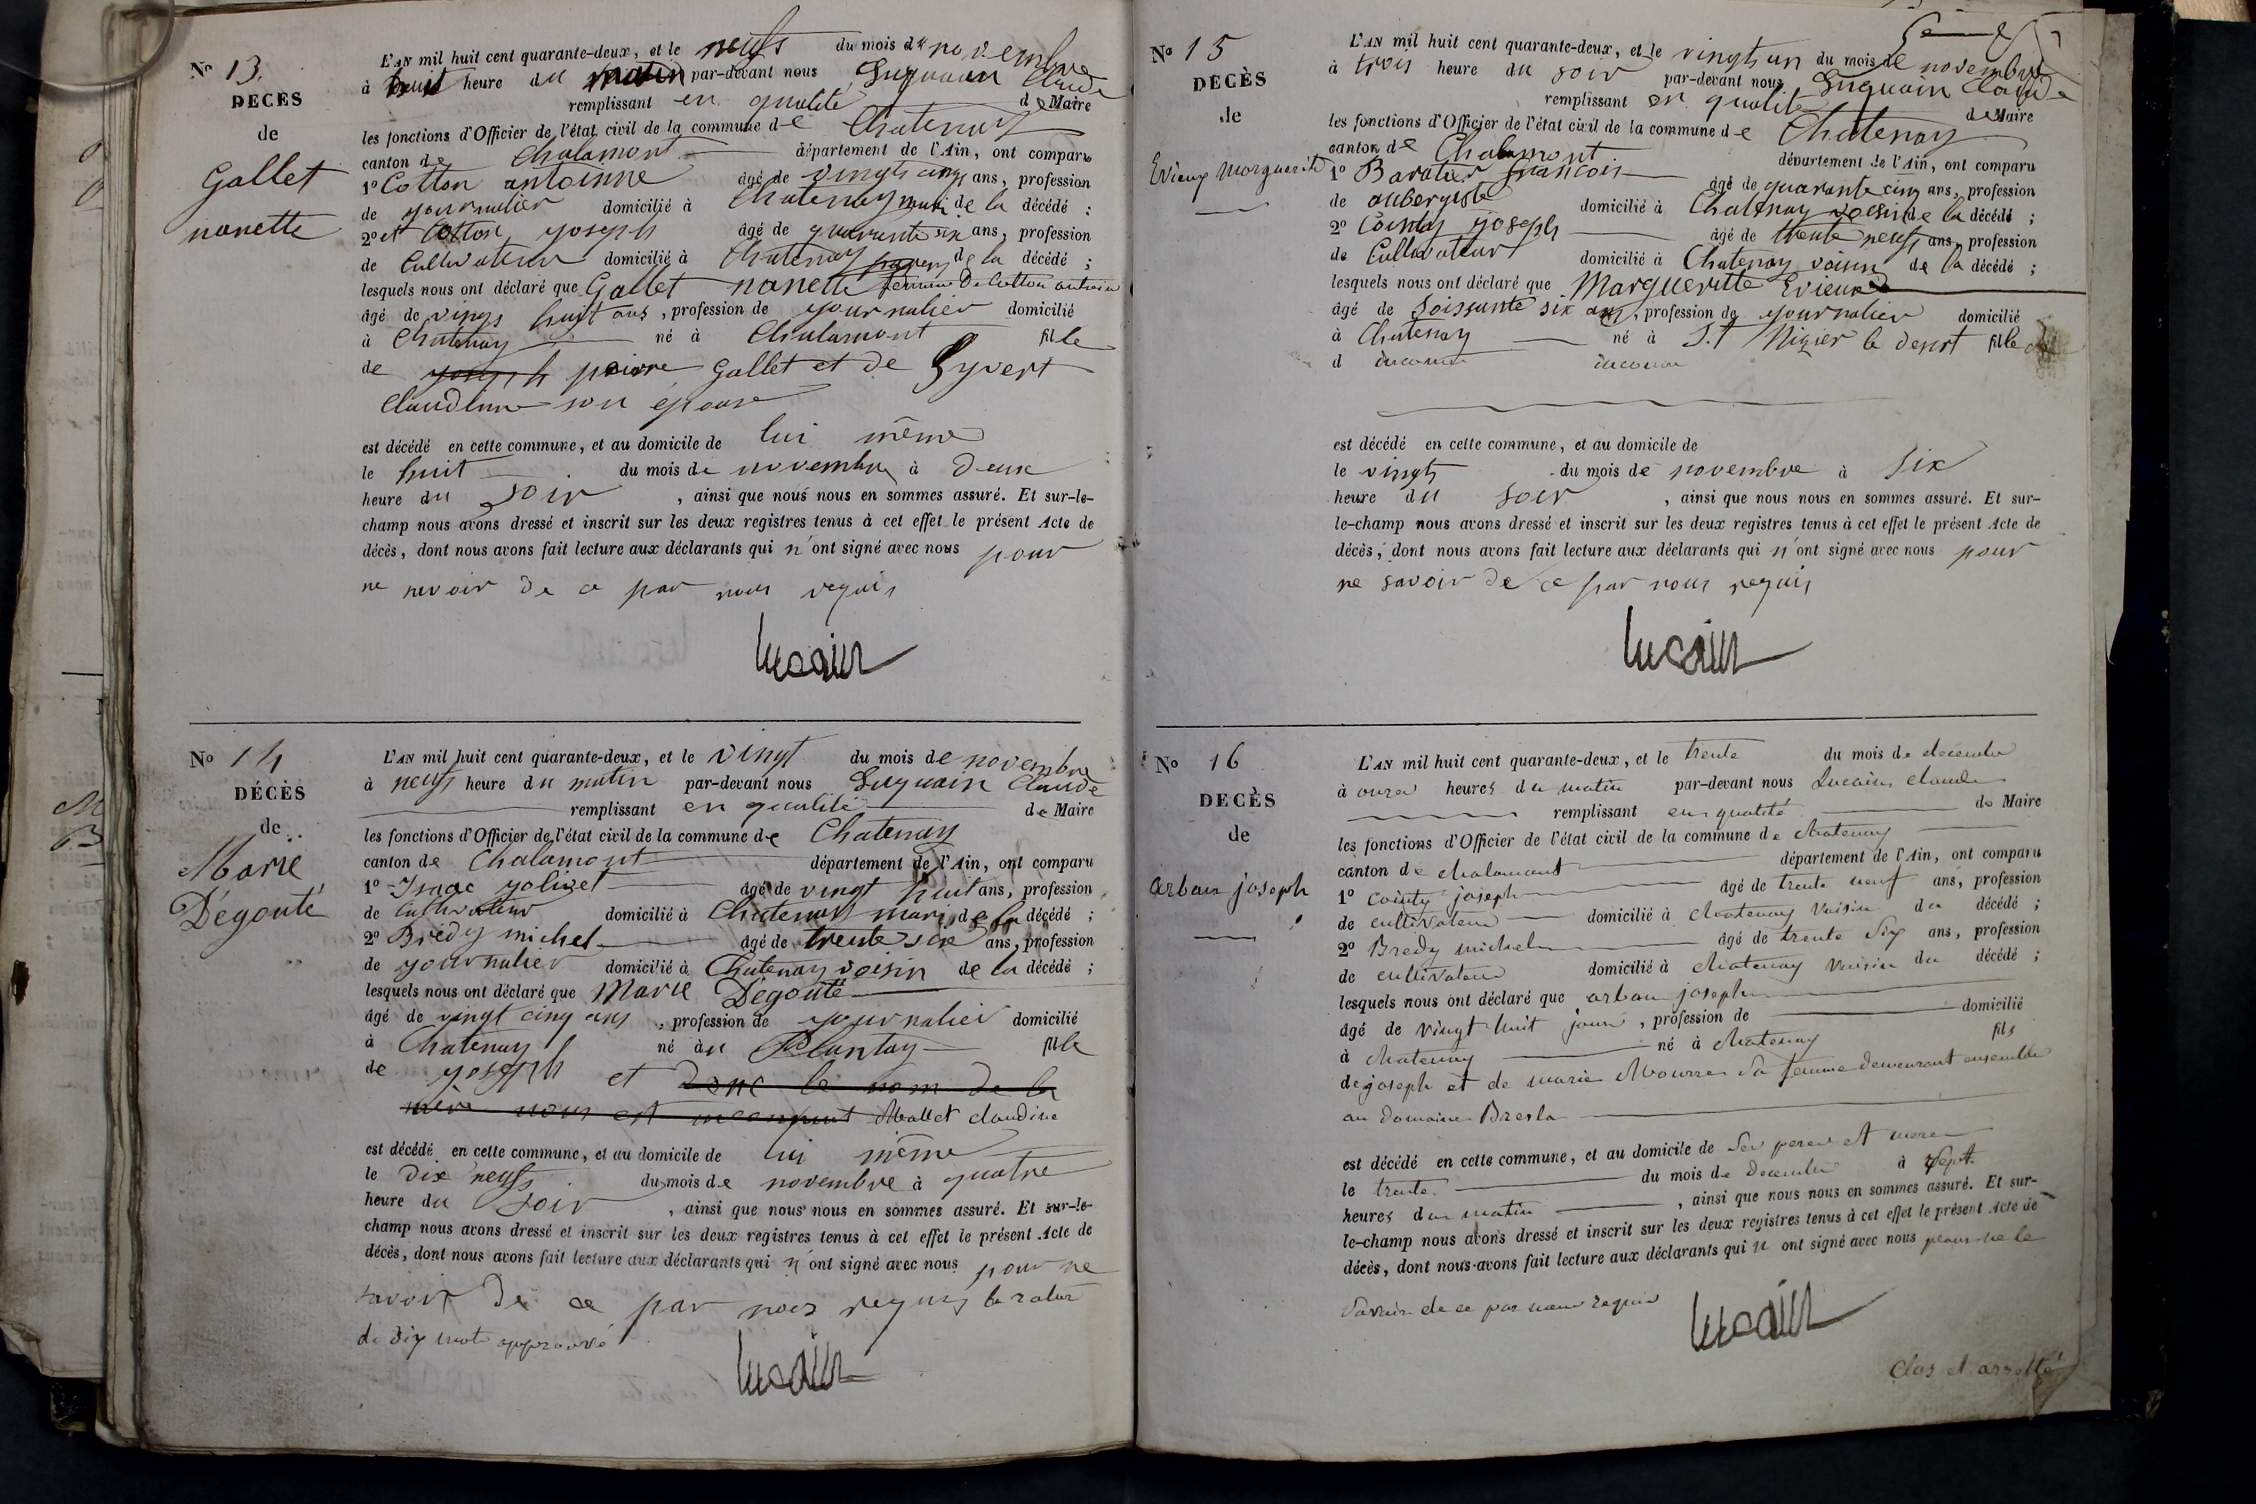 Nº 13.
DÉCÈS
de
Gallet
nanette
L'AN mil huit cent quarante-deux, et le neufs du mois de novembre
à huit heure du matin par-devant nous Luquain Claude
remplissant en qualité de Maire
les fonctions d'Officier de l'état civil de la commune de Chatenay
canton de Chalamont département de l'Ain, ont comparu
1º Cotton antoinne âgé de vingts cinq ans, profession
de journalier domicilié à Chatenay mari de la décédé ;
2º et Cotton joseph âgé de quarante six ans, profession
de Cultivateur domicilié à Chatenay de la décédé ;
lesquels nous ont déclaré que Gallet nanette femme De Cotton antoine
âgé de vings huit ans, profession de journalier domicilié
à Chatenay né à Chalamont fille
de joseph pierre Gallet et de Gyvert
Claudinne son epouse
est décédé en cette commune, et au domicile de lui même
le huit du mois de novembre à deux
heure du soir, ainsi que nous nous en sommes assuré. Et sur-le-
champ nous avons dressé et inscrit sur les deux registres tenus à cet effet le présent Acte de
décès, dont nous avons fait lecture aux déclarants qui n'ont signé avec nous pour
ne savoir de ce par nous requis
Lucain
Nº 14
DÉCÈS
de
Marie
Dégouté
L'AN mil huit cent quarante-deux, et le vingt du mois de novembre
à neufs heure du matin par-devant nous Luquain Claude
remplissant en qualité de Maire
les fonctions d'Officier de l'état civil de la commune de Chatenay
canton de Chalamont département de l'Ain, ont comparu
1º Isaac yolizet âgé de vingt huit ans, profession
de Cultivateur domicilié à Chatenay mari de la décédé ;
2º Brédy michel âgé de trente six ans, profession
de journalier domicilié à Chatenay voisin de la décédé ;
lesquels nous ont déclaré que Marie Dégouté
âgé de vingt cinq ans, profession de journalier domicilié
à Chatenay né au Plantay fille
de joseph et donc le nom de la
mère nous est inconnut Mallet claudine
est décédé en cette commune, et au domicile de lui même
le dix neufs du mois de novembre à quatre
heure du soir, ainsi que nous nous en sommes assuré. Et sur-le-
champ nous avons dressé et inscrit sur les deux registres tenus à cet effet le présent Acte de
décès, dont nous avons fait lecture aux déclarants qui n'ont signé avec nous pour ne
savoir de ce par nous requis la ratur
de dix mots approuvé
Lucain
Nº 15
DÉCÈS
de
Evieux Morguerite
L'AN mil huit cent quarante-deux, et le vingts un du mois de novembre
à trois heure du soir par-devant nous Luquain Claude
remplissant en qualité de Maire
les fonctions d'Officier de l'état civil de la commune de Chatenay
canton de Chalamont département de l'Ain, ont comparu
1º Baratier francois âgé de quarante cinq ans, profession
de aubergiste domicilié à Chatenay voesin de la décédé ;
2º Cointy joseph âgé de trente neufs ans, profession
de Cultivateur domicilié à Chatenay voisin de la décédé ;
lesquels nous ont déclaré que Margueritte Evieux
âgé de soissante six ans, profession de journalier domicilié
à Chatenay né à S.t Nizier le desert fille de
d inconnu inconnu
est décédé en cette commune, et au domicile de
le vingts du mois de novembre à six
heure du soir, ainsi que nous nous en sommes assuré. Et sur-
le-champ nous avons dressé et inscrit sur les deux registres tenus à cet effet le présent Acte de
décès, dont nous avons fait lecture aux déclarants qui n'ont signé avec nous pour
ne savoir de ce par nous requis
Lucain
Nº 16
DÉCÈS
de
arban joseph
L'AN mil huit cent quarante-deux, et le trente du mois de decembre
à onze heures du matin par-devant nous Lucain claude
remplissant en qualité de Maire
les fonctions d'Officier de l'état civil de la commune de chatenay
canton de chalamont département de l'Ain, ont comparu
1º cointy joseph âgé de trente neuf ans, profession
de cultivateur domicilié à chatenay voisin du décédé ;
2º Bredy michel âgé de trente six ans, profession
de cultivateur domicilié à chatenay voisin du décédé ;
lesquels nous ont déclaré que arban joseph
âgé de vingt huit jours, profession de domicilié
à chatenay né à chatenay fils
de joseph et de marie Mourre sa femme demeurant ensemble
au domaine Bresla
est décédé en cette commune, et au domicile de ses perre et mere
le trente du mois de decembre à sept
heures du matin, ainsi que nous nous en sommes assuré. Et sur-
le-champ nous avons dressé et inscrit sur les deux registres tenus à cet effet le présent Acte de
décès, dont nous avons fait lecture aux déclarants qui n ont signé avec nous pour ne le
savoir de ce par nous requis
Lucain
Clos et arretté